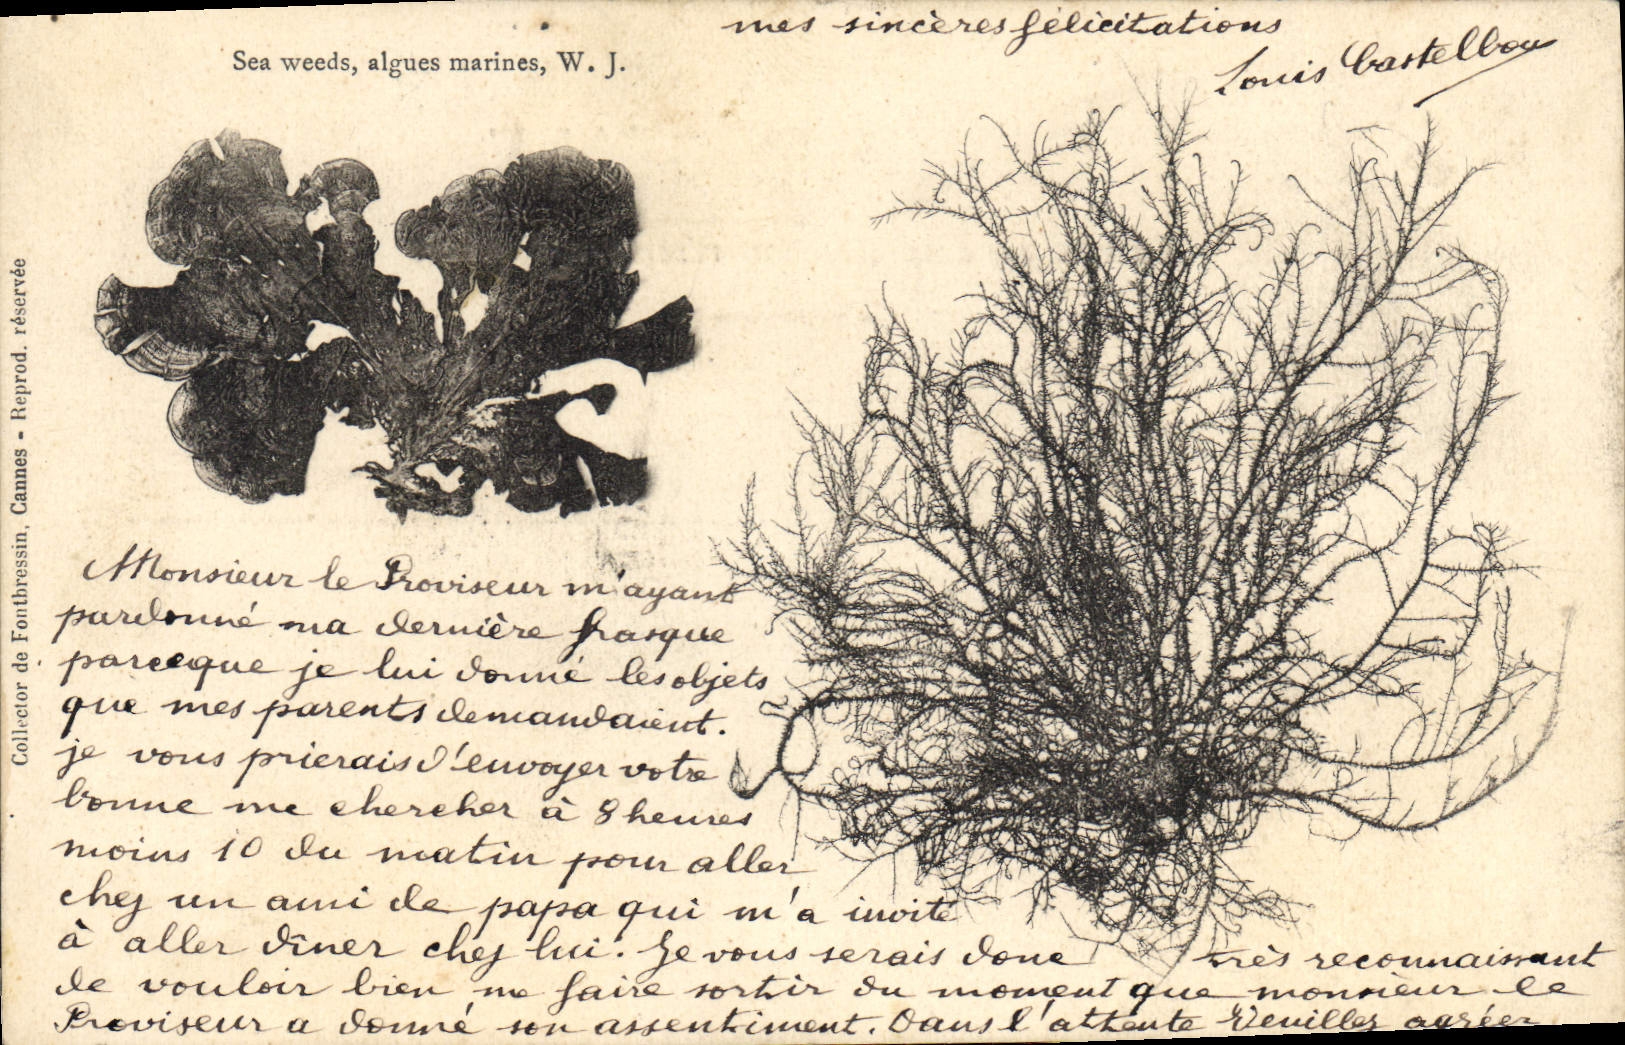 mes sincères félicitations
Louis Castelbou
Sea weeds, algues marines, W. J.
Collector de Fontbressin, Cannes - Reprod. réservée
Monsieur le Proviseur m'ayant
pardonné ma dernière frasque
parceque je lui donné les objets
que mes parents demandaient.
je vous prierais d'envoyer votre
bonne me chercher à 8 heures
moins 10 du matin pour aller
chez un ami de papa qui m'a invité
à aller dîner chez lui. Je vous serais donc très reconnaissant
de vouloir bien me faire sortir du moment que monsieur le
Proviseur a donné son assentiment. Dans l'attente Veuillez agréer